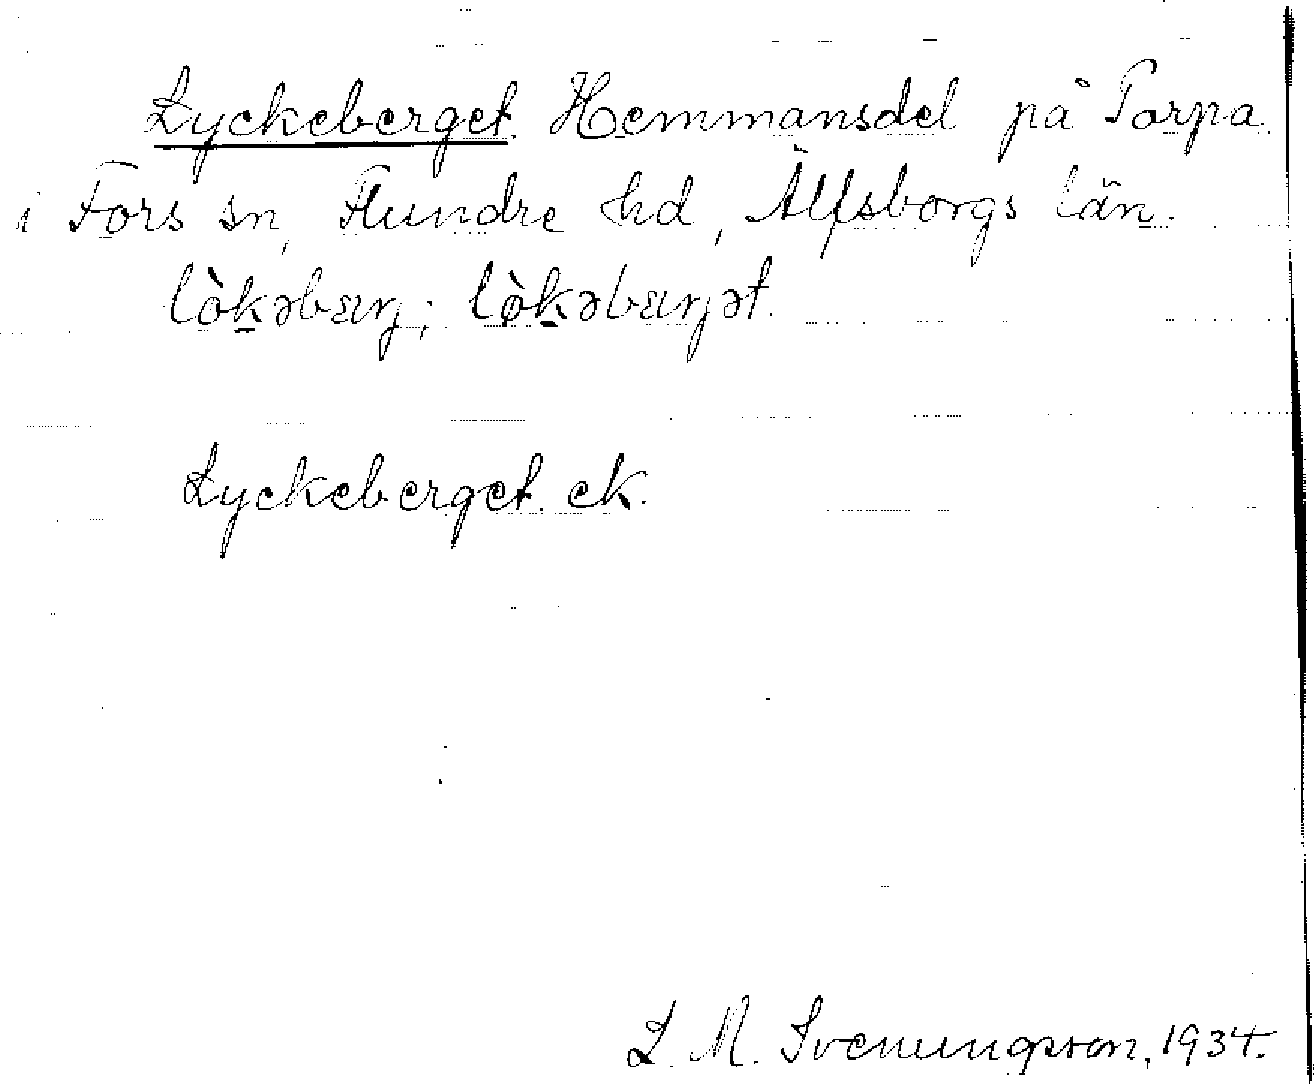 Lyckeberget. Hemmansdel på Torpa
i Fors sn, Flundre hd, Älfsborgs län.
Lyckeberget. ek.
L. M. Svenungsson, 1934.